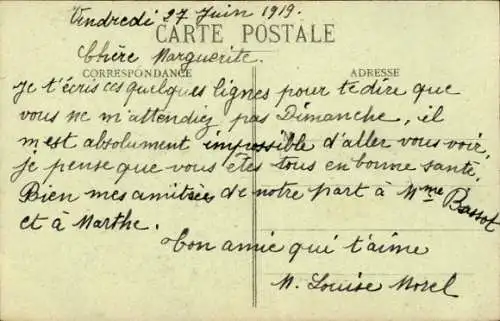 Vendredi 27 Juin 1919.
CARTE POSTALE
Chère Marguerite.
CORRESPONDANCE
ADRESSE
Je t'écris ces quelques lignes pour te dire que
vous ne m'attendiez pas Dimanche, il
m'est absolument impossible d'aller vous voir,
je pense que vous êtes tous en bonne santé.
Bien mes amitiées de notre part à Mme Bassot
et à Marthe.
Ton amie qui t'aime
M. Louise Morel